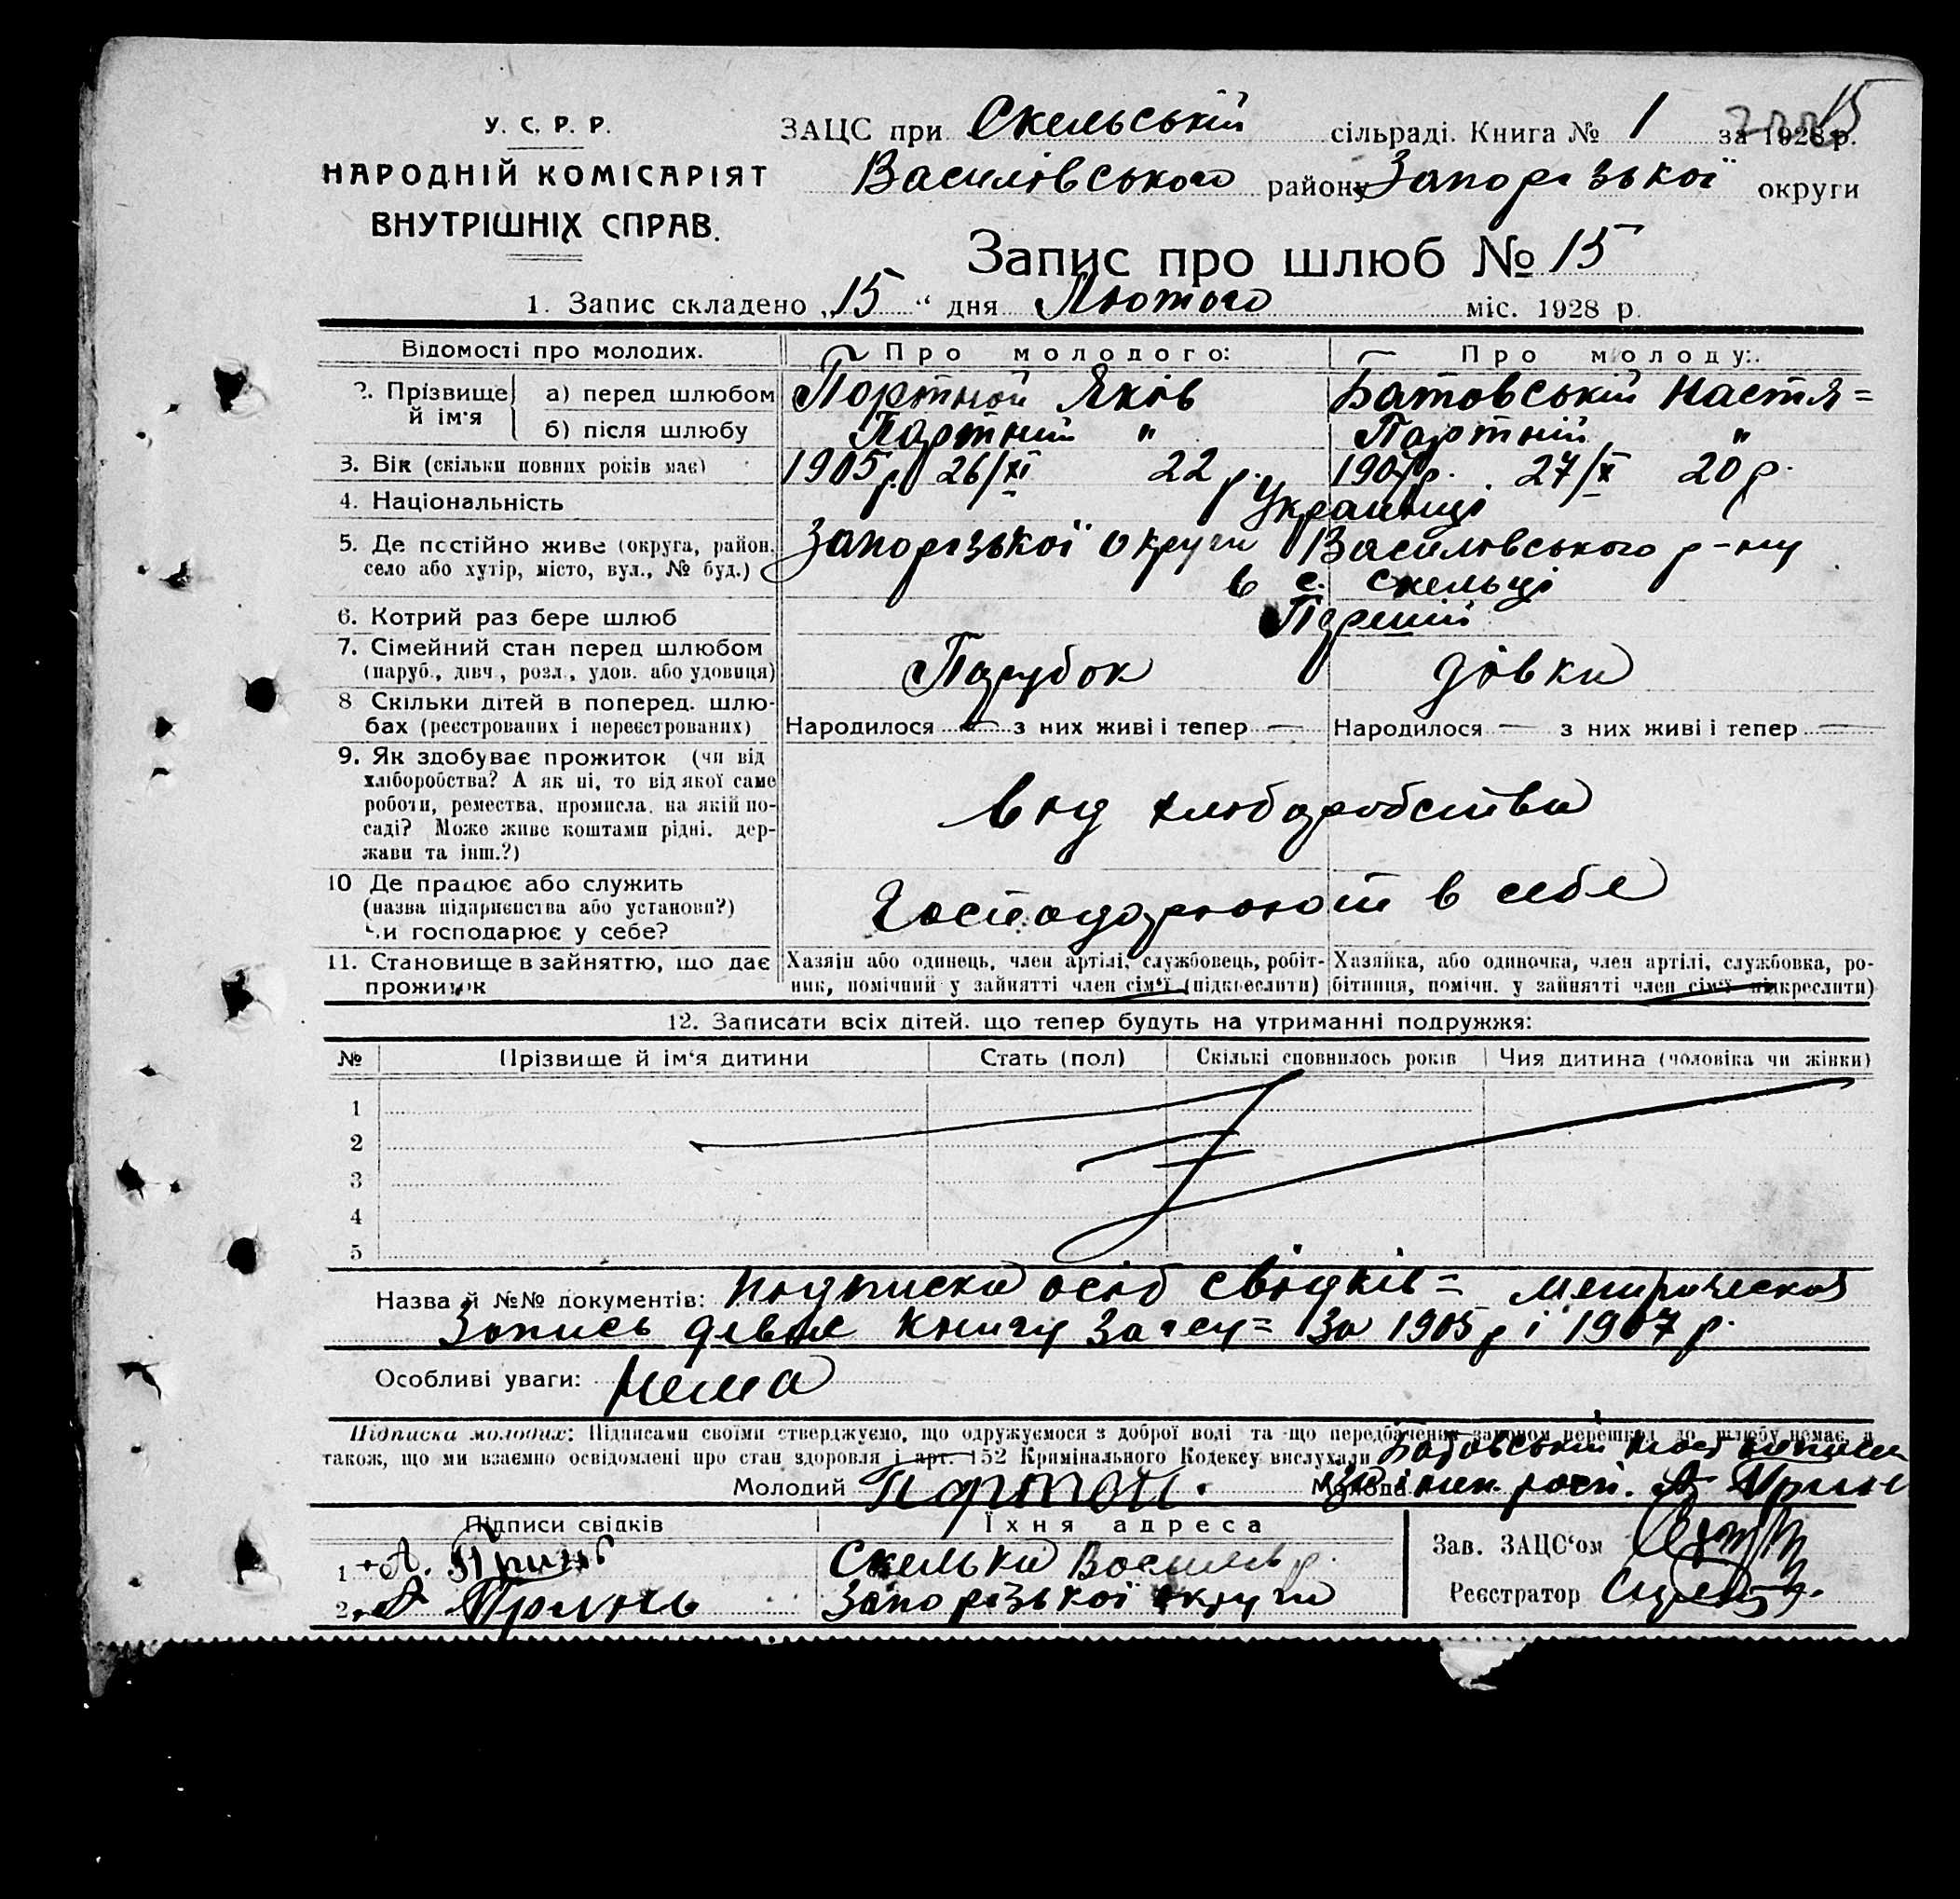 15
У. С. Р. Р.
НАРОДНІЙ КОМІСАРІЯТ
ВНУТРІШНІХ СПРАВ.
ЗАЦС при Скельській сільраді. Книга № 1 за 1928 р.
Василівського району Запорізької округи
Запис про шлюб № 15
1. Запис складено „15“ дня Лютого міс. 1928 р.
Відомості про молодих. Про молодого: Про молоду:
2. Прізвище й ім'я а) перед шлюбом Портной Яків Батовській Настя=
б) після шлюбу Портній " Портній "
3. Вік (скільки повних років має) 1905 р. 26/XI 22 р. 1907 р. 27/X 20 р.
4. Національність Украінці
5. Де постійно живе (округа, район, Запорізької округи Василовського р-ну
село або хутір, місто, вул., № буд.) в с. Скельці
6. Котрий раз бере шлюб Перший
7. Сімейний стан перед шлюбом
(паруб., дівч., розл., удов. або удовиця) Парубок дівка
8 Скільки дітей в поперед. шлю-
бах (реєстрованих і нереєстрованих) Народилося — з них живі і тепер — Народилося — з них живі і тепер —
9. Як здобуває прожиток (чи від
хліборобства? А як ні, то від якої саме
роботи, ремества, промисла, на якій по-
саді? Може живе коштами рідні, дер-
жави та інш.?)
від хліборобства
10 Де працює або служить
(назва підприєпства або установи?)
чи господарює у себе?
Господарюють в себе
11. Становище в зайняттю, що дає
прожиток
Хазяїн або одинець, член артілі, службовець, робіт-
ник, помічний у зайнятті член сім'ї (підкреслити)
Хазяйка, або одиночка, член артілі, службовка, ро-
бітниця, помічн. у зайнятті член сім'ї підкреслити)
12. Записати всіх дітей, що тепер будуть на утриманні подружжя:
№ Прізвище й ім'я дитини Стать (пол) Скількі сповнилось років Чия дитина (чоловіка чи жінки)
1
2
3
4
5
Назва й №№ документів: подписка осіб свідків= метрическая
Запись книгу Загсу= За 1905 р і 1907 р.
Особливі уваги: Нема
Підписка молодих: Підписами своїми стверджуємо, що одружуємося з доброї волі та що передбачених законом перешкод до шлюбу немає, а
також, що ми взаємно освідомлені про стан здоровля і арт. 152 Кримінального Кодексу вислухали Батовській
Молодий Портной. Молода А Принь
Підписи свідків Їхня адреса
1 А. Принь Скелька Василів р.
2 А Принь Запорізької округи
Зав. ЗАЦС‘ом
Реєстратор